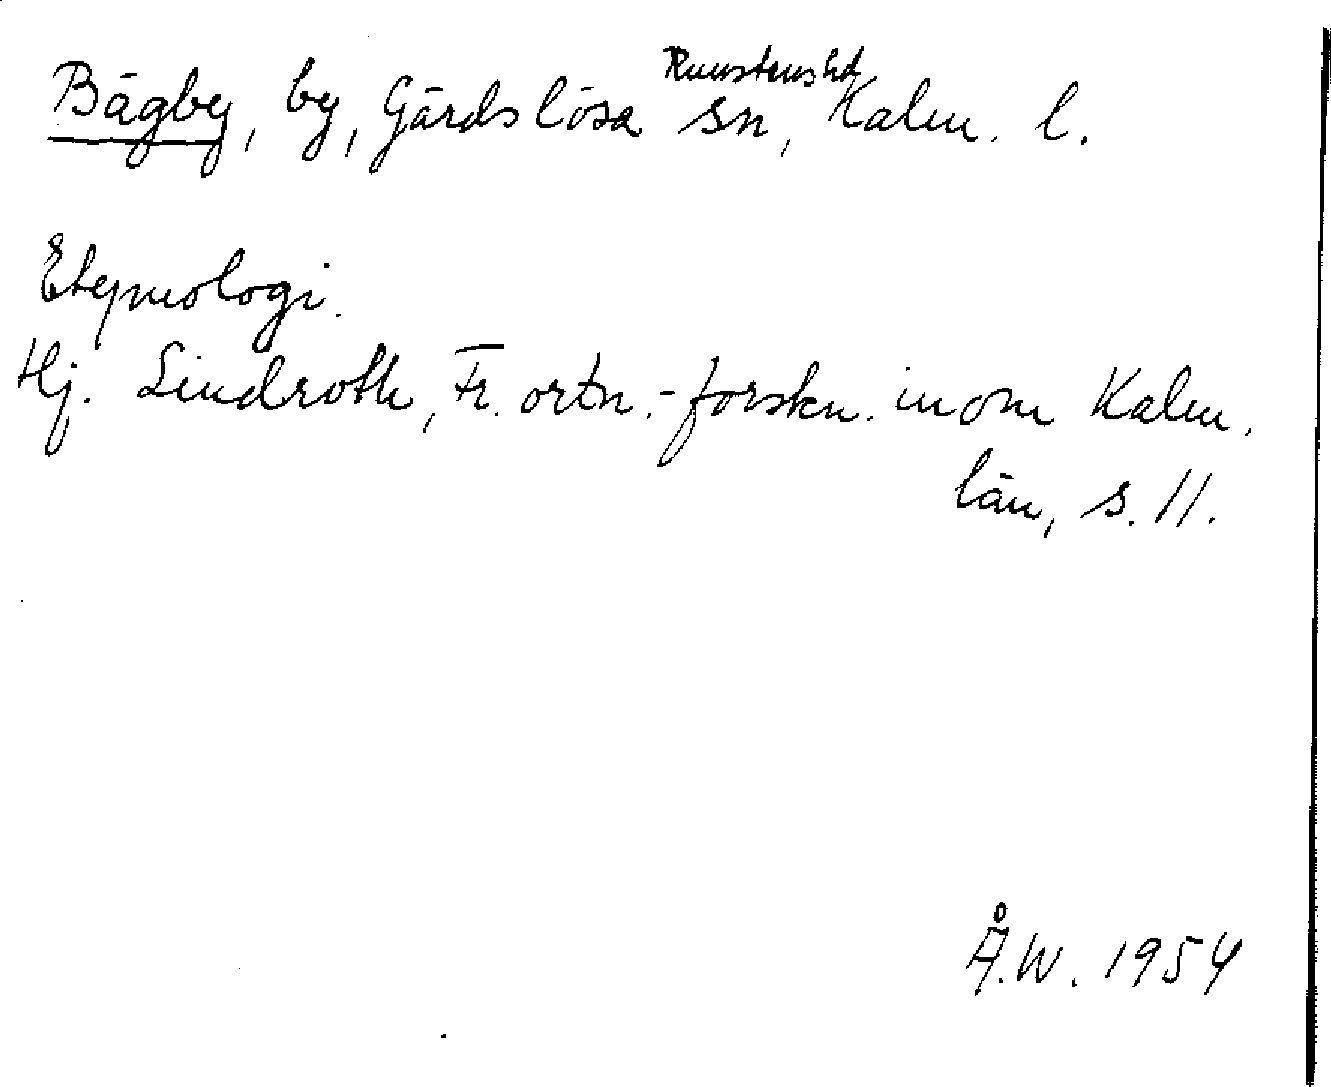 Bägby, by, Gärdslösa sn, Runstens hd Kalm. l.
Etymologi.
Hj. Lindroth, Fr. ortn.-forskn. inom Kalm.
län, s. 11.
Å.W. 1954